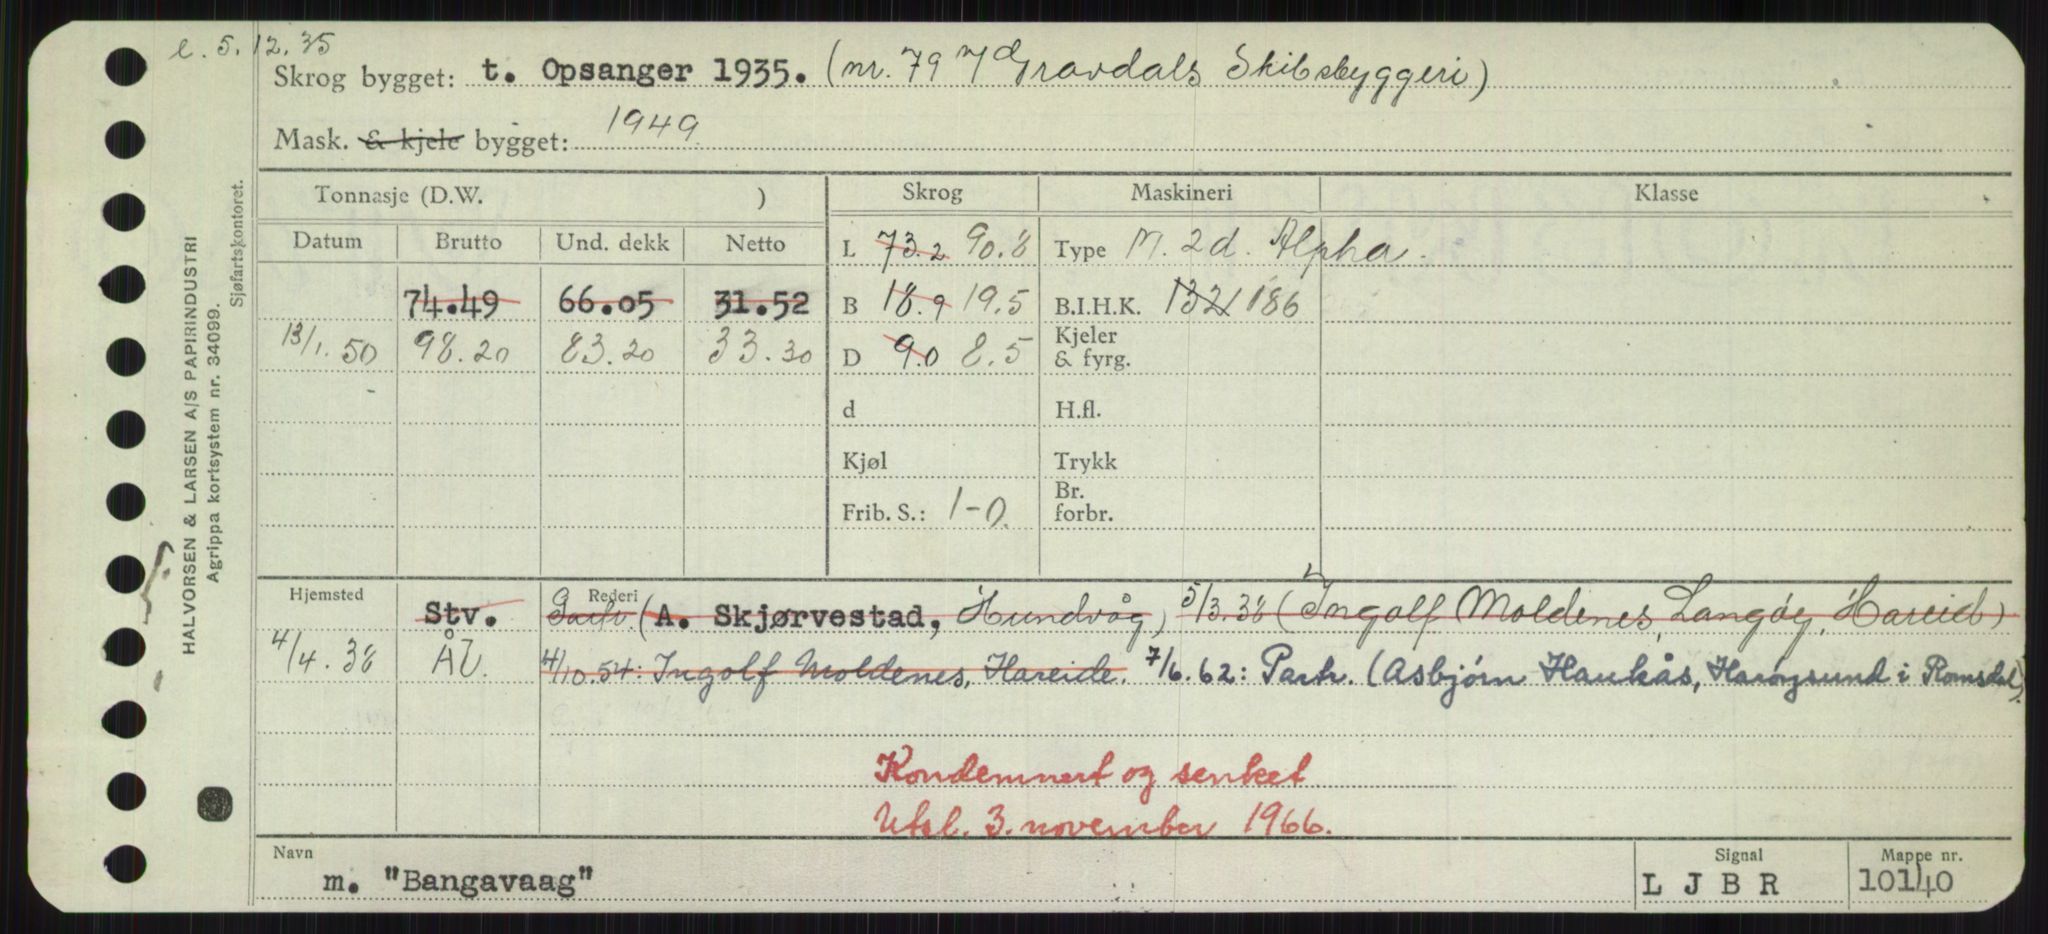 e. 5.12.35
Skrog bygget: t. Opsanger 1935. (nr. 79 Gravdals Skibsbyggeri)
Mask. & kjele bygget: 1949.
Tonnasje (D.W. ) Skrog Maskineri Klasse
Datum Brutto Und. dekk Netto L 73.2 90.8 Type M. 2d. Alpha.
74.49 66.05 31.52 B 18.9 19.5 B.I.H.K. 132 186
13/1.50 98.20 83.20 33.30 D 9.0 8.5 Kjeler & fyrg.
d H.fl.
Kjøl Trykk
Frib. S.: 1-0. Br. forbr.
Hjemsted Rederi
Stv. Partr. (A. Skjørvestad, Hundvåg) 5/3.38 (Ingolf Moldenes, Langøy, Hareid)
4/4.38 ÅV. 4/10.54: Ingolf Moldenes, Hareide. 7/6.62: Partr. (Asbjørn Haukås, Harøysund i Romsdal)
Kondemnert og senket
Utsl. 3. november 1966.
Navn Signal Mappe nr.
m. "Bangavaag" L J B R 10140
HALVORSEN & LARSEN A/S PAPIRINDUSTRI
Agrippa kortsystem nr. 34099.
Sjøfartskontoret.